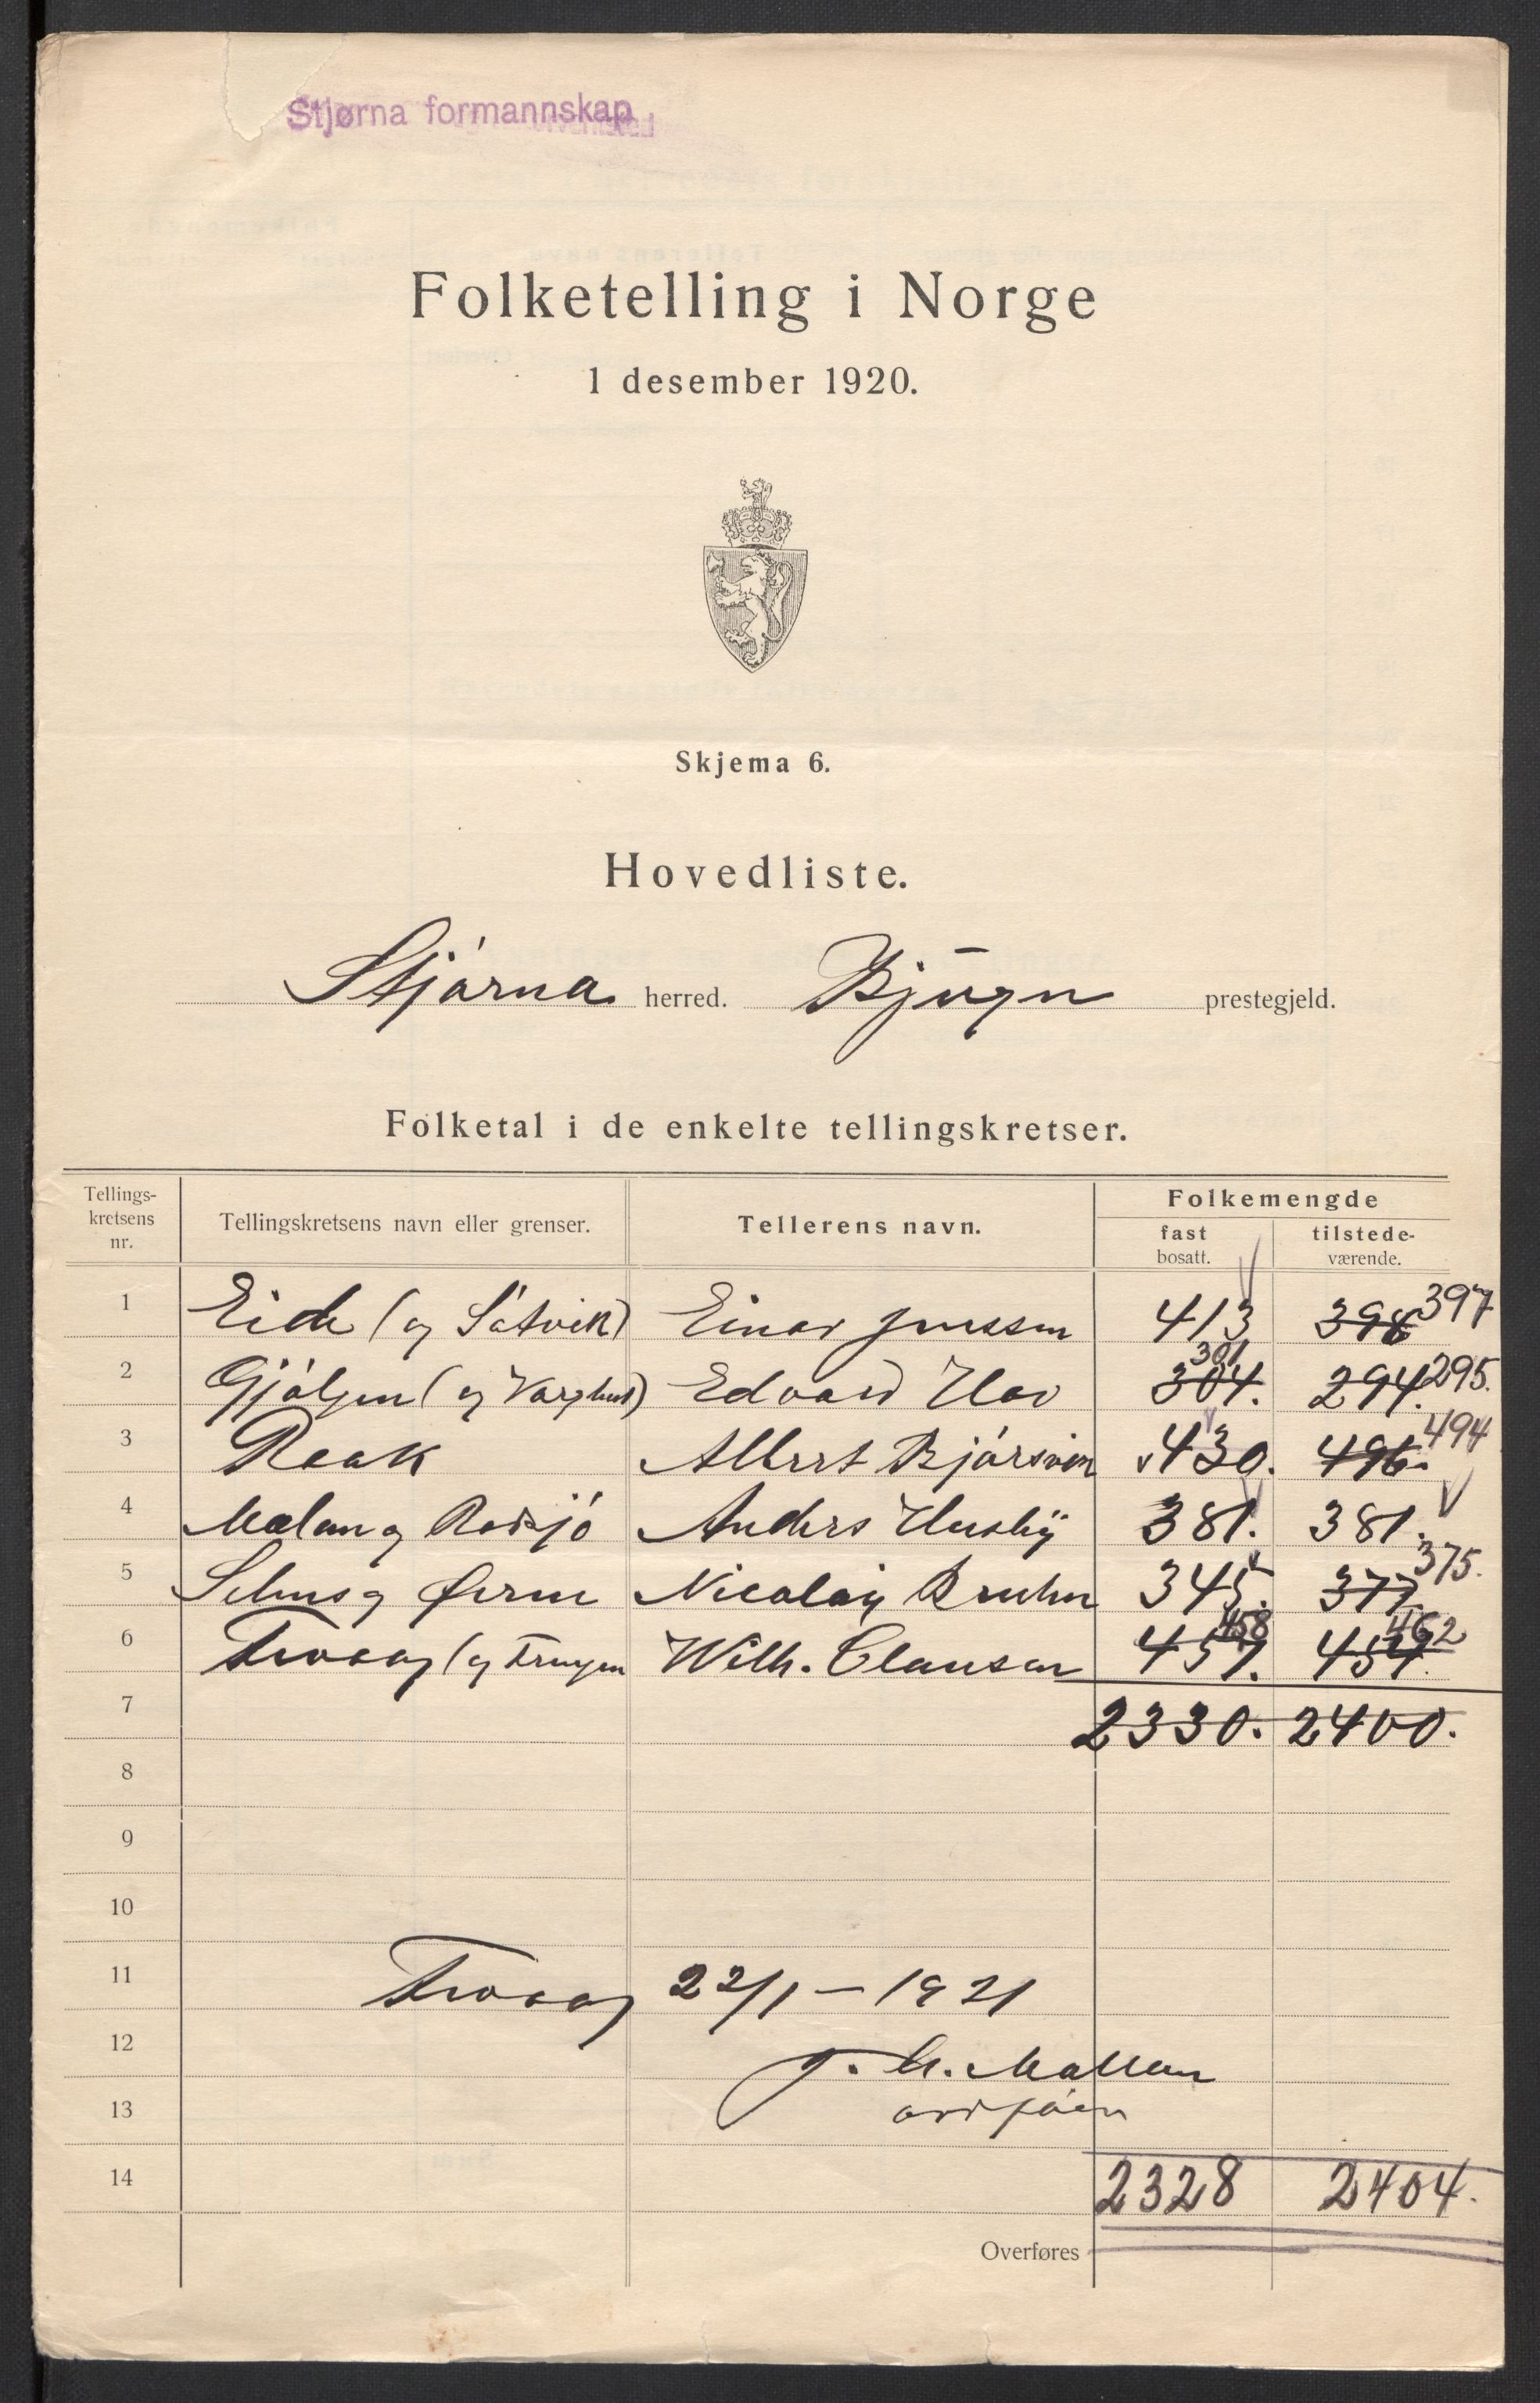 Stjørna formannskap
Folketelling i Norge
1 desember 1920.
Skjema 6.
Hovedliste.
Stjørna herred. Bjugn prestegjeld.
Folketal i de enkelte tellingskretser.
Tellings-
kretsens
nr.
Tellingskretsens navn eller grenser.
Tellerens navn.
Folkemengde
fast
bosatt.
tilstede-
værende.
1 Eide (og Såtvik) Einar 413 398 397
2 Gjølgen (og Varghus) Edvard Hov 304. 301 294. 295.
3 Raak Albert Bjørsvik 430. 496. 494
4 Mælan og Rødsjø Anders Husby 381. 381.
5 og Nicolay Bruhn 345. 377. 375.
6 (og Wilh. Clausen 457. 458 454. 462
7 2330. 2400.
8
9
10
11 22/1 – 1921
12
13
14 2328 2404.
Overføres